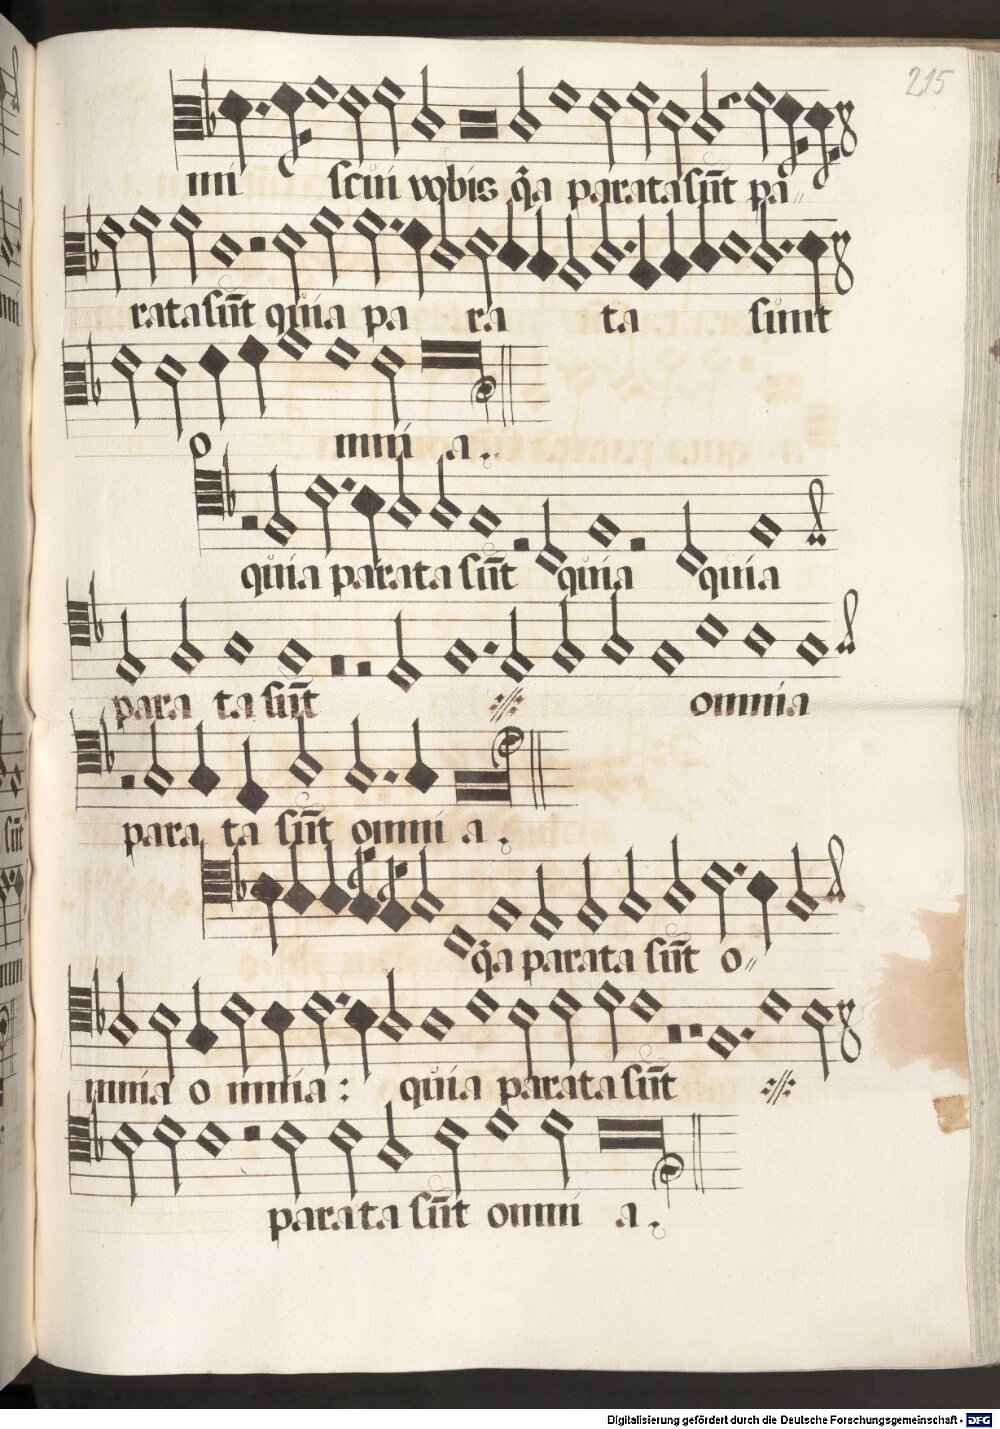 215
mi scui vobis q̃a parata sũt pa〃
rata sũt quia pa ra ta sunt
o mni a.
quia parata sũt quia quia
para ta sũt ://: omnia
para ta sũt omni a.
q̃a parata sũt o〃
mnia o mnia: quia parata sũt ://:
parata sũt omni a.
Digitalisierung gefördert durch die Deutsche Forschungsgemeinschaft - DFG